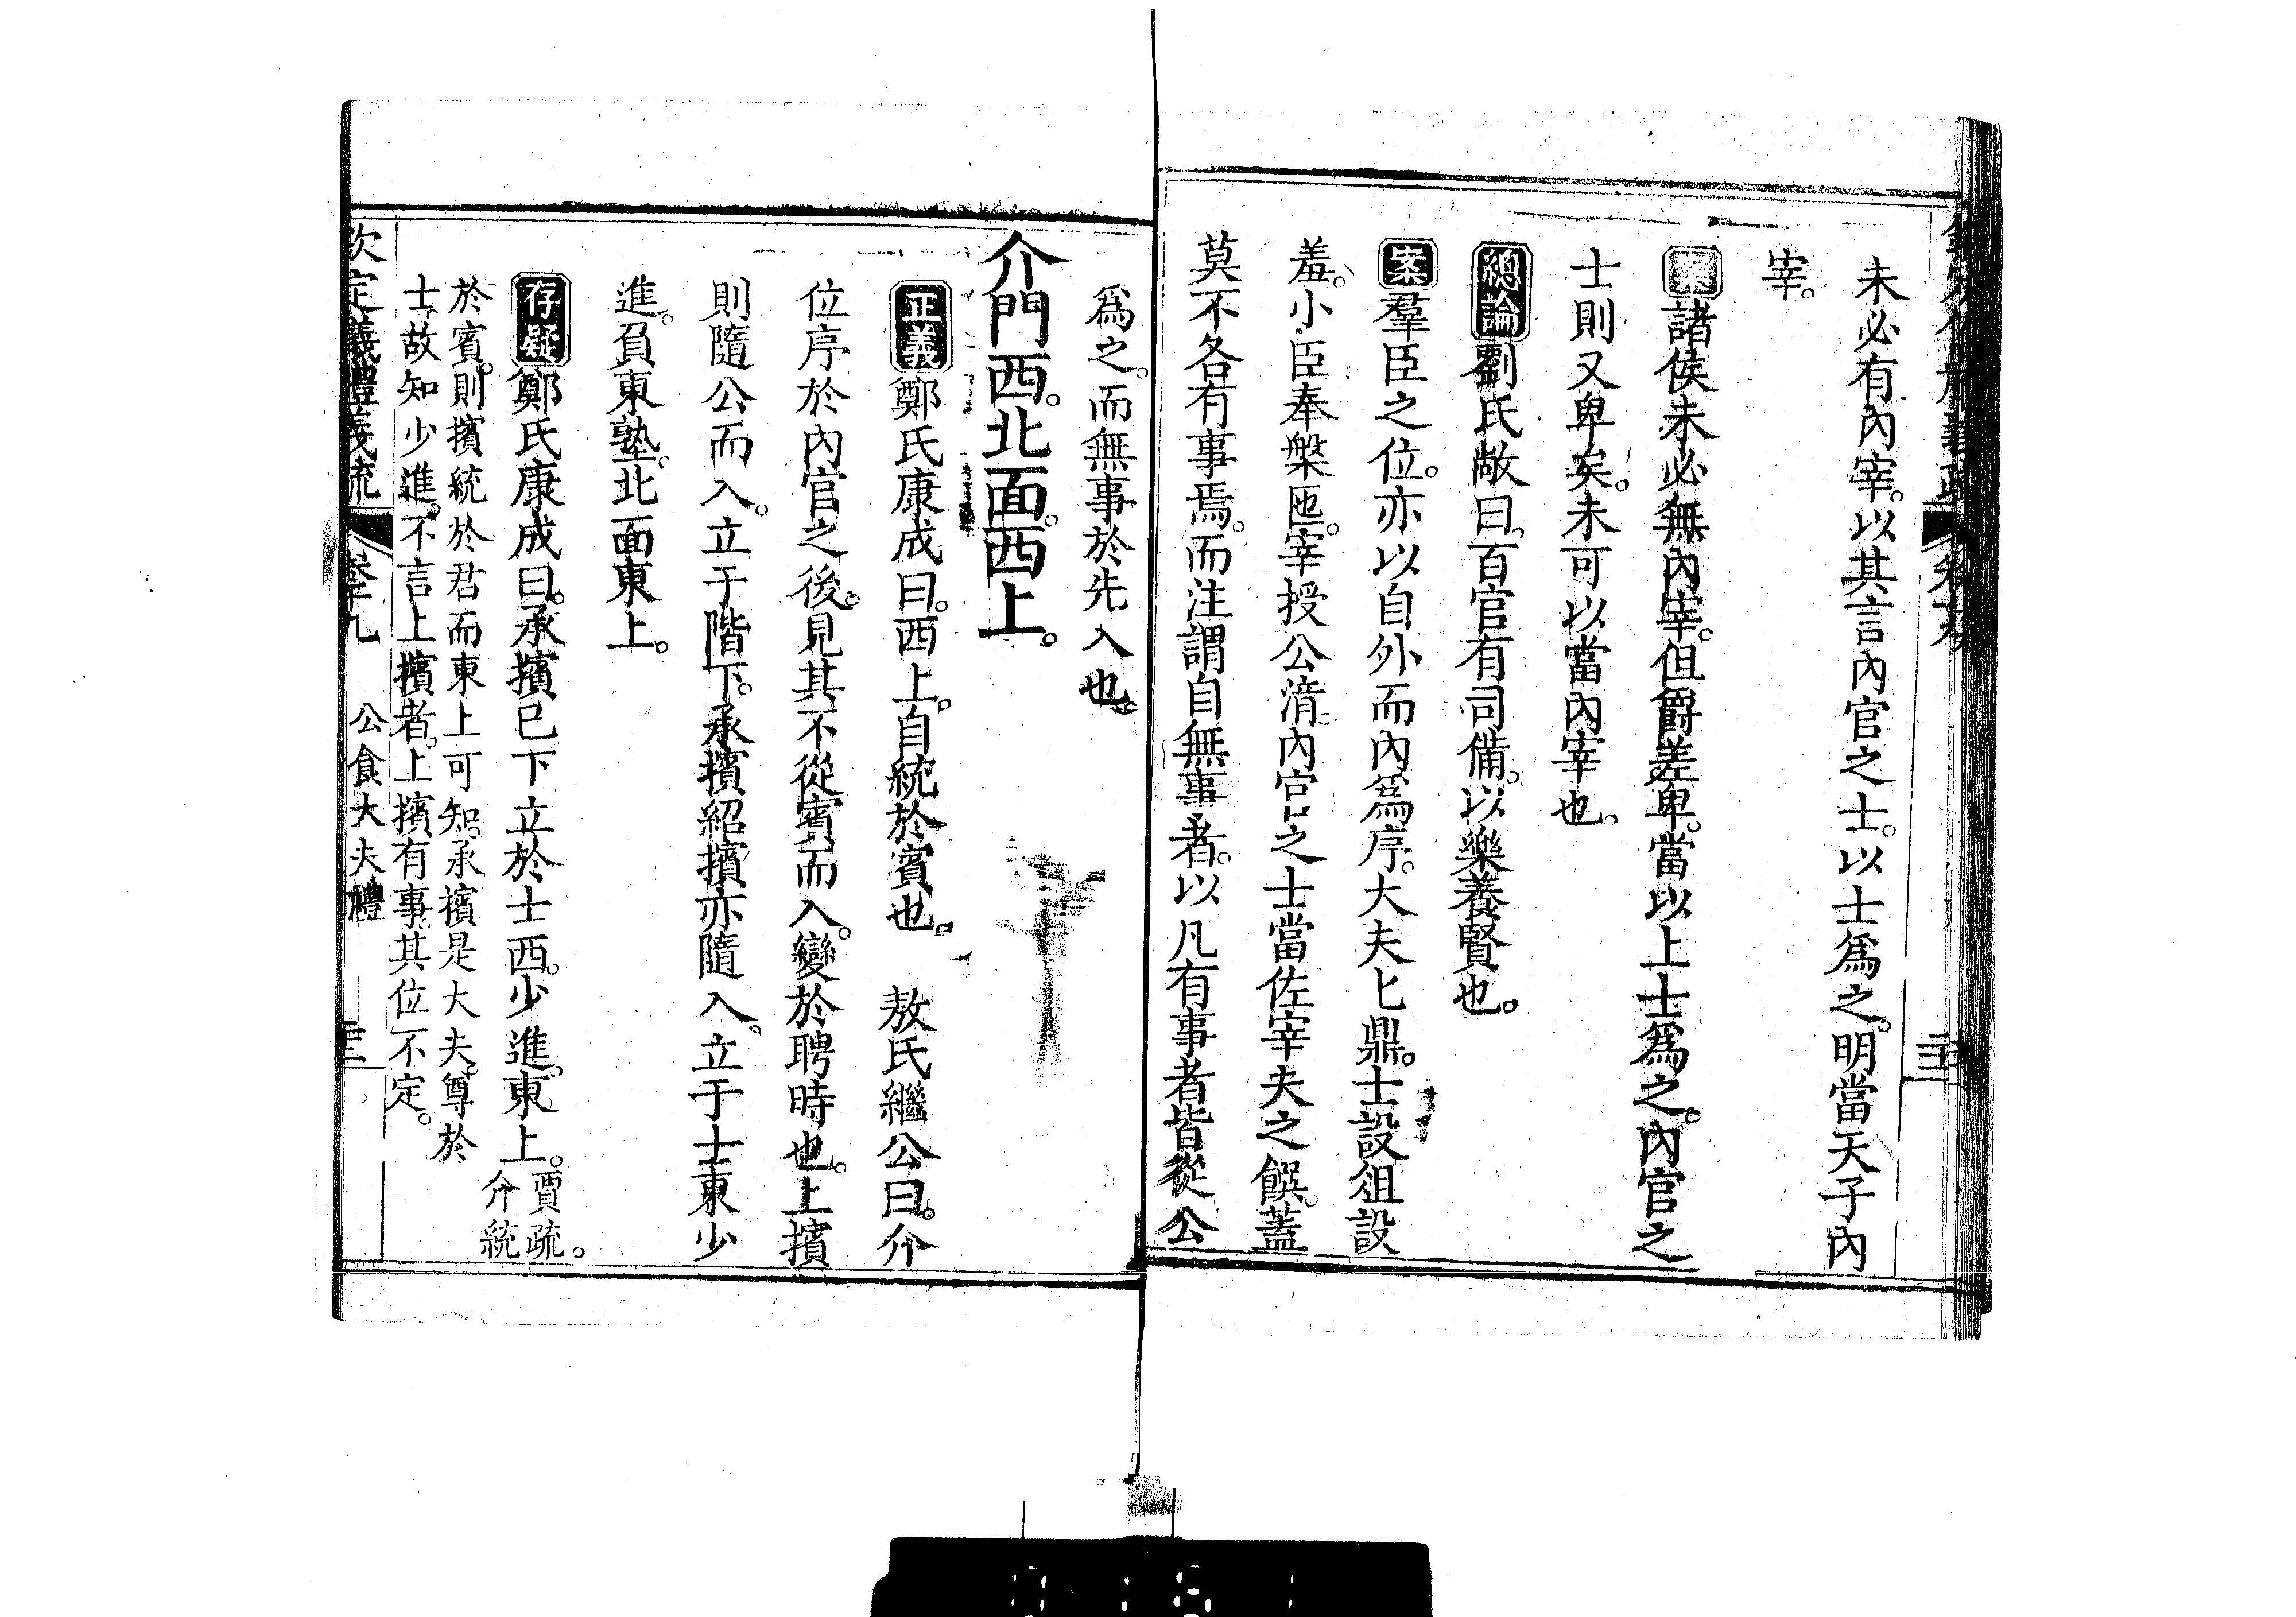 未必有內宰。以其言內官之士。以士爲之。明當天子內
宰。
案諸侯未必無內宰。但爵差卑。當以上士爲之。內官之
士則又卑矣。未可以當內宰也。
總論劉氏敞曰。百官有司備。以樂養賢也。
案羣臣之位。亦以自外而內爲序。大夫匕鼎。士設俎設
羞。小臣奉槃匜。宰授公湇。內官之士當佐宰夫之饌。蓋
莫不各有事焉。而注謂自無事者。以凡有事者皆從公
爲之。而無事於先入也。
介門西。北面西上。
正義鄭氏康成曰。西上。自統於賓也。 敖氏繼公曰。介
位序於內官之後。見其不從賓而入。變於聘時也。上擯
則隨公而入。立于階下。承擯紹擯亦隨入。立于士東少
進。負東塾。北面東上。
存疑鄭氏康成曰。承擯已下立於士西。少進。東上。賈疏。介統
於賓。則擯統於君而東上可知。承擯是大夫。尊於
士。故知少進。不言上擯者。上擯有事。其位不定。
欽定義禮義疏 卷十九 公食大夫禮